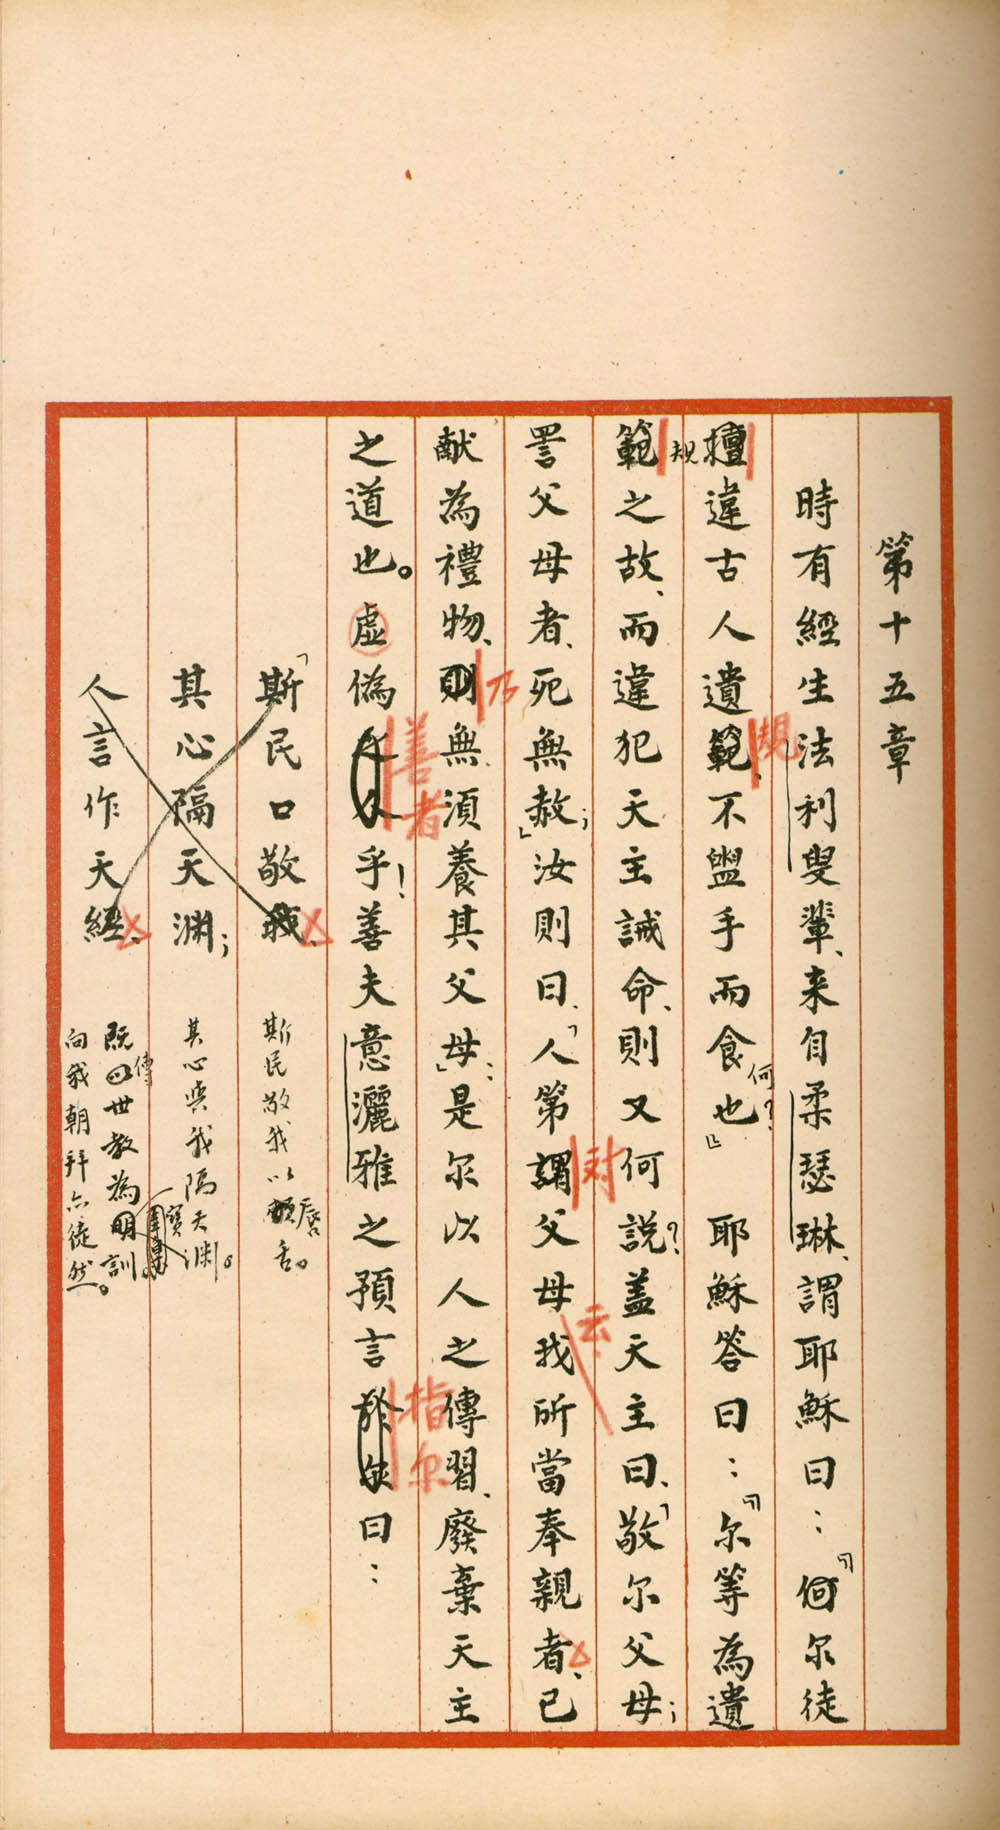 第十五章
時有經生法利叟輩、來自柔瑟琳、謂耶穌曰：『何尔徒
擅違古人遺範、不盥手而食也』何？耶穌答曰：『尔等為遺
規
規
範之故、而違犯天主誡命、則又何說？蓋天主曰、「敬尔父母；
詈父母者、死無赦；」汝則曰、「人第謂父母我所當奉親者、已
対
云
献為禮物、則無須養其父母」：是尔以人之傳習、廢棄天主
乃
之道也。虛偽乎！善夫意灑雅之預言於曰：
善者
指尔
「斯民口敬我、
其心隔天淵；
人言作天經、
斯民敬我以唇舌。
其心與我隔天淵。
寶
既以世教為明訓。
傳
向我朝拜亦徒然。